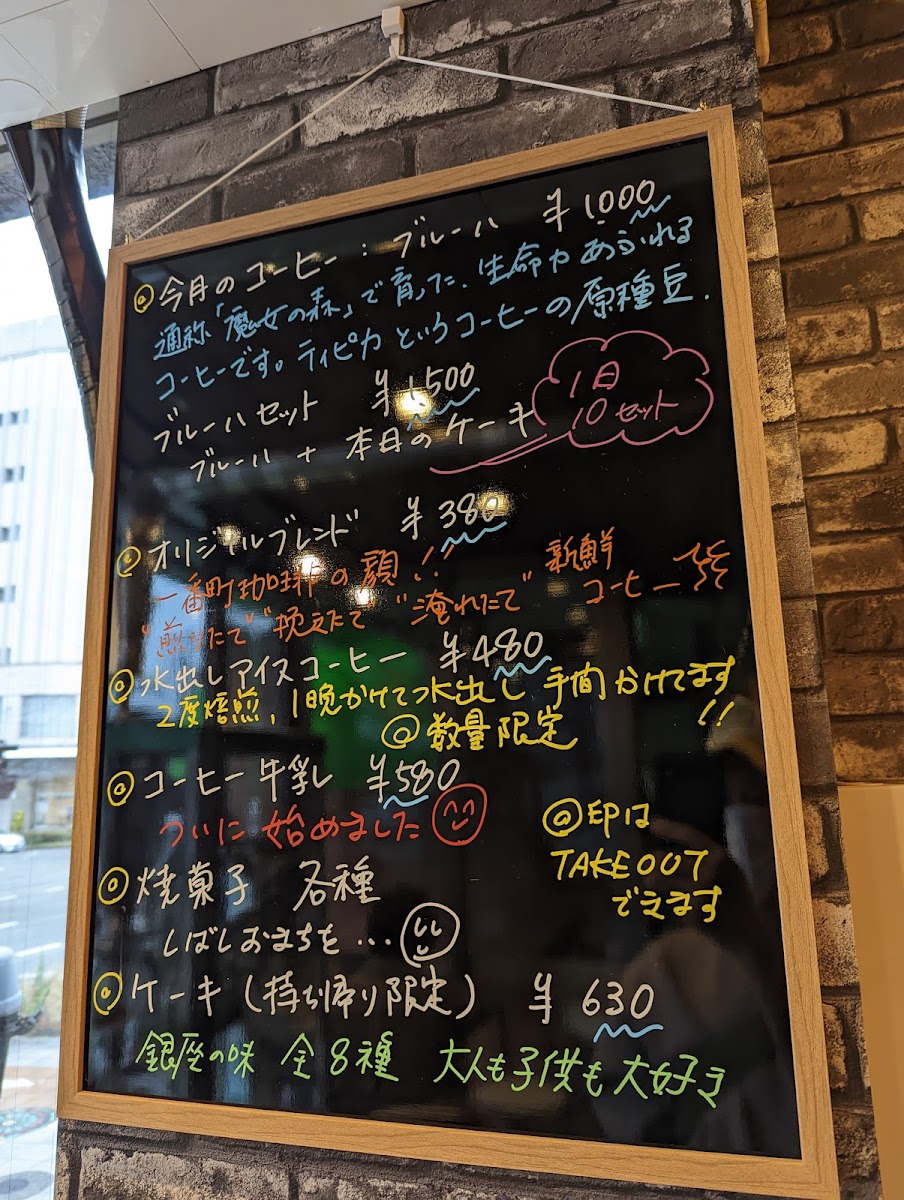 ◎今月のコーヒー：ブルーハ ¥1000
通称「魔女の森」で育った、生命力あふれる
コーヒーです。ティピカというコーヒーの原種豆.
ブルーハセット ¥1,500
ブルーハ + 本日のケーキ
1日
10セット
◎オリジナルブレンド ¥380
一番町珈琲の顔!!
"煎りたて" "挽きたて" "淹れたて" 新鮮
コーヒー
◎水出しアイスコーヒー ¥480
2度焙煎, 1晩かけて水出し 手間かけてます!!
◎数量限定
◎コーヒー牛乳 ¥580
ついに始めました
◎印は
TAKEOUT
できます
◎焼菓子 各種
しばしおまちを...
◎ケーキ(持ち帰り限定) ¥630
銀座の味 全8種 大人も子供も大好き